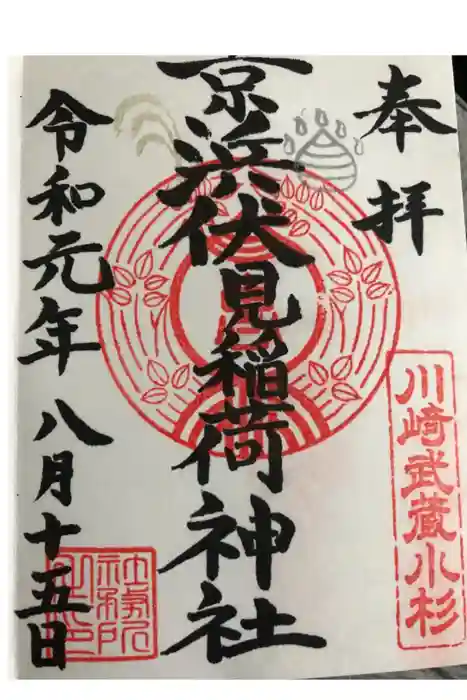 奉拝
川崎武蔵小杉
京浜伏見稲荷神社
令和元年八月十五日
社務所之印